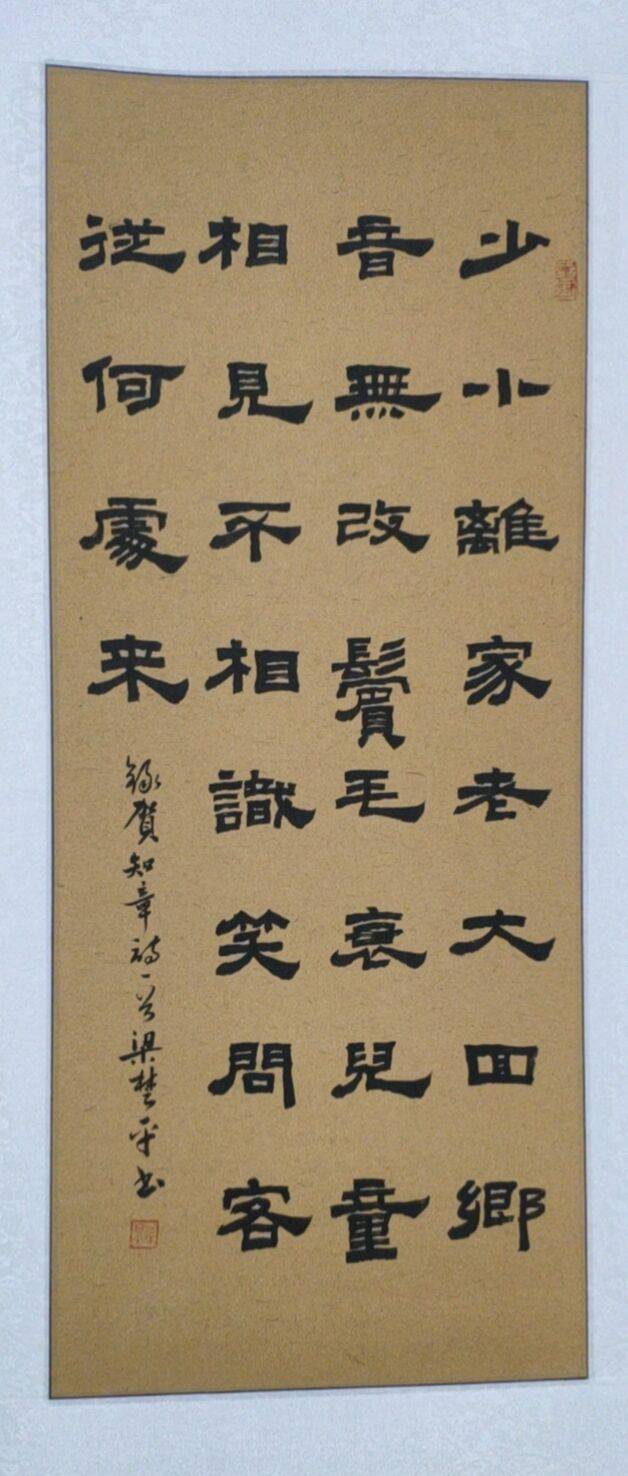 少小離家老大回鄉
音無改鬢毛衰兒童
相見不相識笑問客
從何處来
錄賀知章詩一首梁楚平书